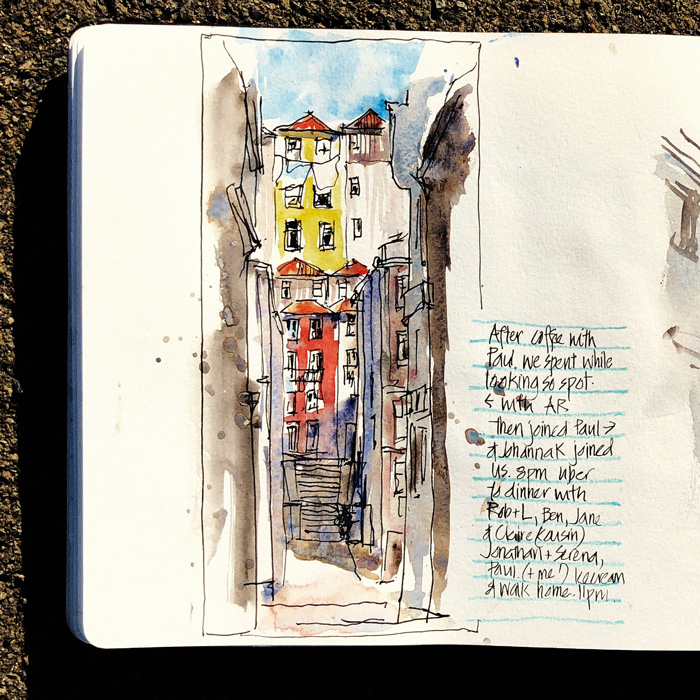 After coffee with
Paul. we spent while
looking so spot.
← with AR
Then joined Paul →
& Johanna K joined
us. 8pm uber
to dinner with
Rob + L, Ben, Jane
& Claire (Kausin)
Jonathan + Serena,
Paul (+ me!) Icecream
& walk home. 11pm.